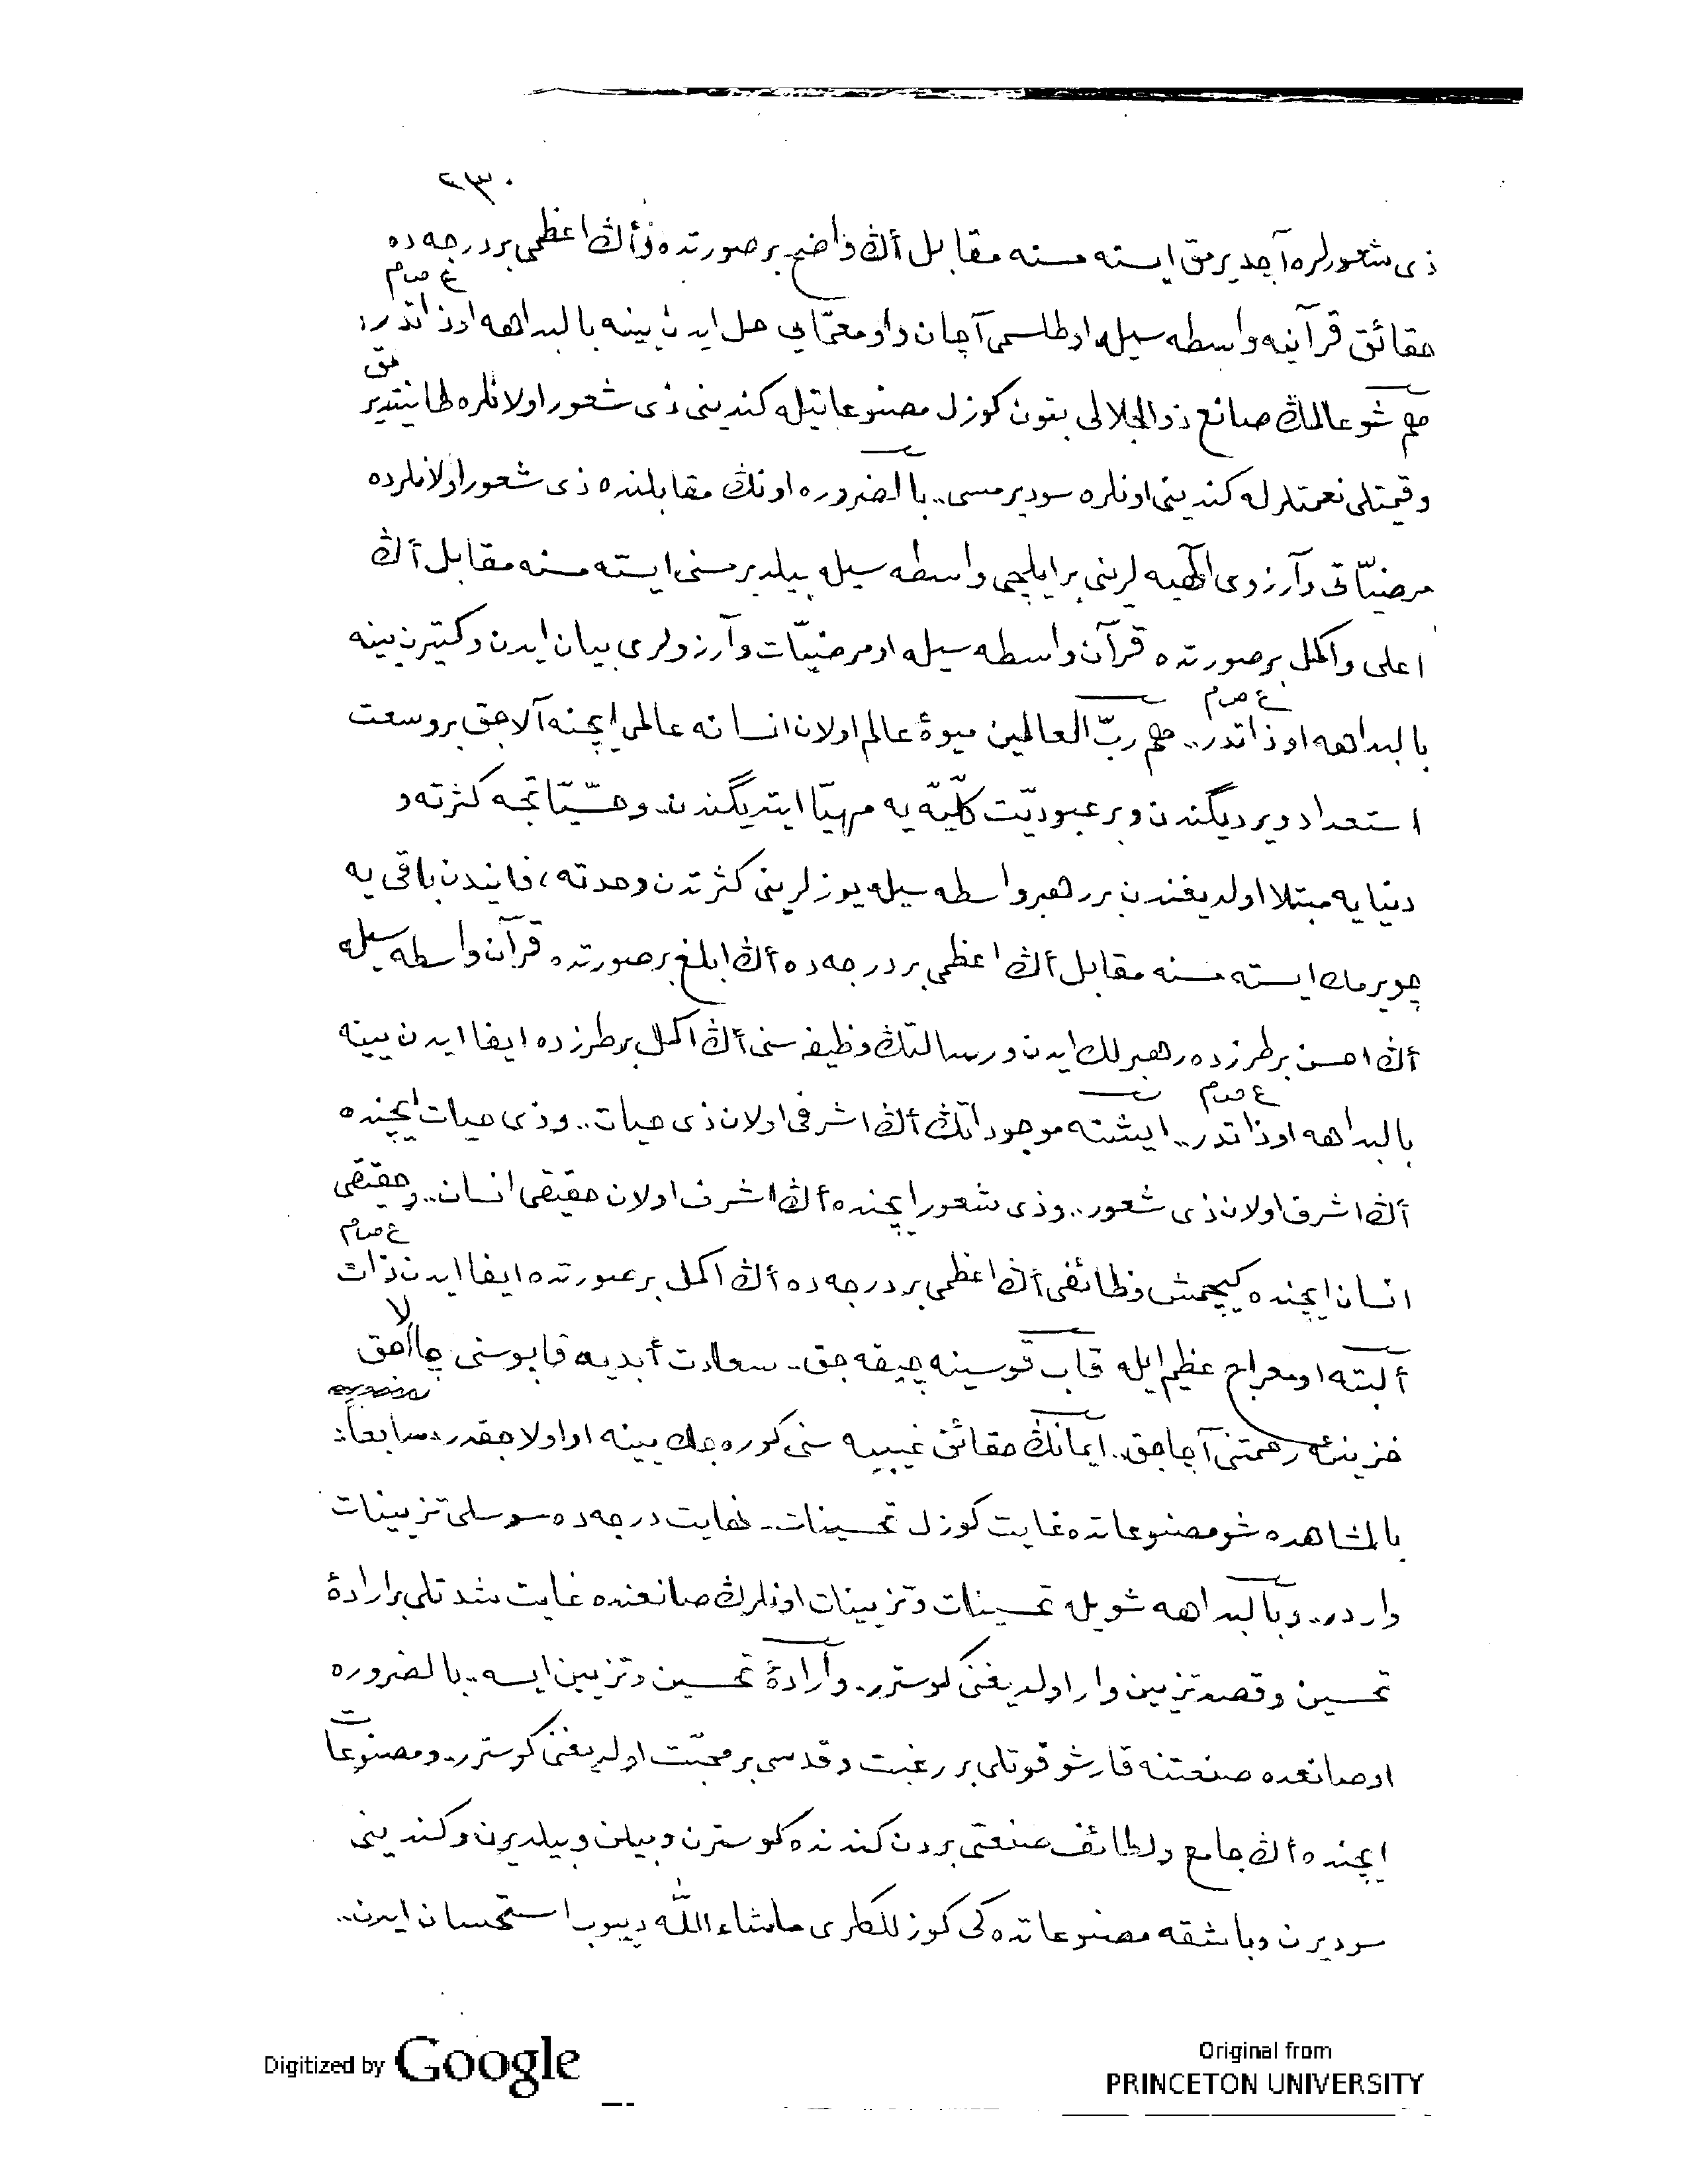 ٢٣٠
ذى شعورلره آچديرمق ايسته مسنه مقابل أڭ واضح بر صورتده وأڭ اعظمى بر درجه ده
ع ص م
حقائق قرآنيه واسطه سيله او طلسمى آچان واو معمّايى حل ايدن ينه بالبداهه او ذاتدر،
هم شو عالمڭ صانع ذوالجلالى بتون كوزل مصنوعاتيله كندينى ذى شعور اولانلره طانيتديرمق
وقيمتلى نعمتلرله كندينى اونلره سوديرمسى.. بالضروره اونڭ مقابلنده ذى شعور اولانلرده
مرضيّاتى وآرزوى الٓهيه لرينى بر ايلچى واسطه سيله بيلديرمسنى ايسته مسنه مقابل أڭ
اعلى واكمل بر صورتده قرآن واسطه سيله او مرضيّات وآرزولرى بيان ايدن وكتيرن ينه
ع ص م
بالبداهه او ذاتدر.. هم ربّ العالمين ميوۀ عالم اولان انسانه عالمى ايچنه آلاجق بر وسعت
استعداد ويرديگندن وبر عبوديّت كلّيّه يه مهيّا ايتديگندن.. وحسّيّاتجه كثرته و
دنيايه مبتلا اولديغندن بر رهبر واسطه سيله يوزلرينى كثرتدن وحدته، فانيدن باقى يه
چويرمك ايسته مسنه مقابل أڭ اعظمى بر درجه ده أڭ ابلغ بر صورتده قرآن واسطه سيله
أڭ احسن بر طرزده رهبرلك ايدن ورسالتڭ وظيفه سنى أڭ اكمل بر طرزده ايفا ايدن ينه
ع ص م
بالبداهه او ذاتدر.. ايشته موجوداتڭ أڭ اشرفى اولان ذى حيات.. وذى حيات ايچنده
أڭ اشرف اولان ذى شعور.. وذى شعور ايچنده أڭ اشرف اولان حقيقى انسان.. وحقيقى
ع ص م
انسان ايچنده كچمش وظائفى أڭ اعظمى بر درجه ده أڭ اكمل بر صورتده ايفا ايدن ذات
ألبته او معراج عظيم ايله قاب قوسينه چيقه جق.. سعادت أبديه قاپوسنى چالاجق
خزينۀ رحمتنى آچاجق.. ايمانڭ حقائق غيبيه سنى كوره جك ينه او اولاجقدر. سابعاً:
بالمشاهده شو مصنوعاتده غايت كوزل تحسينات.. نهايت درجه ده سوسلى تزيينات
واردر.. وبالبداهه شويله تحسينات وتزيينات اونلرڭ صانعنده غايت شدتلى بر ارادۀ
تحسين وقصد تزيين وار اولديغنى كوسترر.. وارادۀ تحسين وتزيين ايسه.. بالضروره
او صانعده صنعتنه قارشو قوتلى بر رغبت وقدسى بر محبّت اولديغنى كوسترر.. ومصنوعات
ايچنده أڭ جامع ولطائف صنعتى بردن كندنده كوسترن وبيلن وبيلديرن وكندينى
سوديرن وباشقه مصنوعاتده كى كوزللكلرى ماشاء اللّٰه دييوب استحسان ايدن..
Digitized by Google
Original from
PRINCETON UNIVERSITY